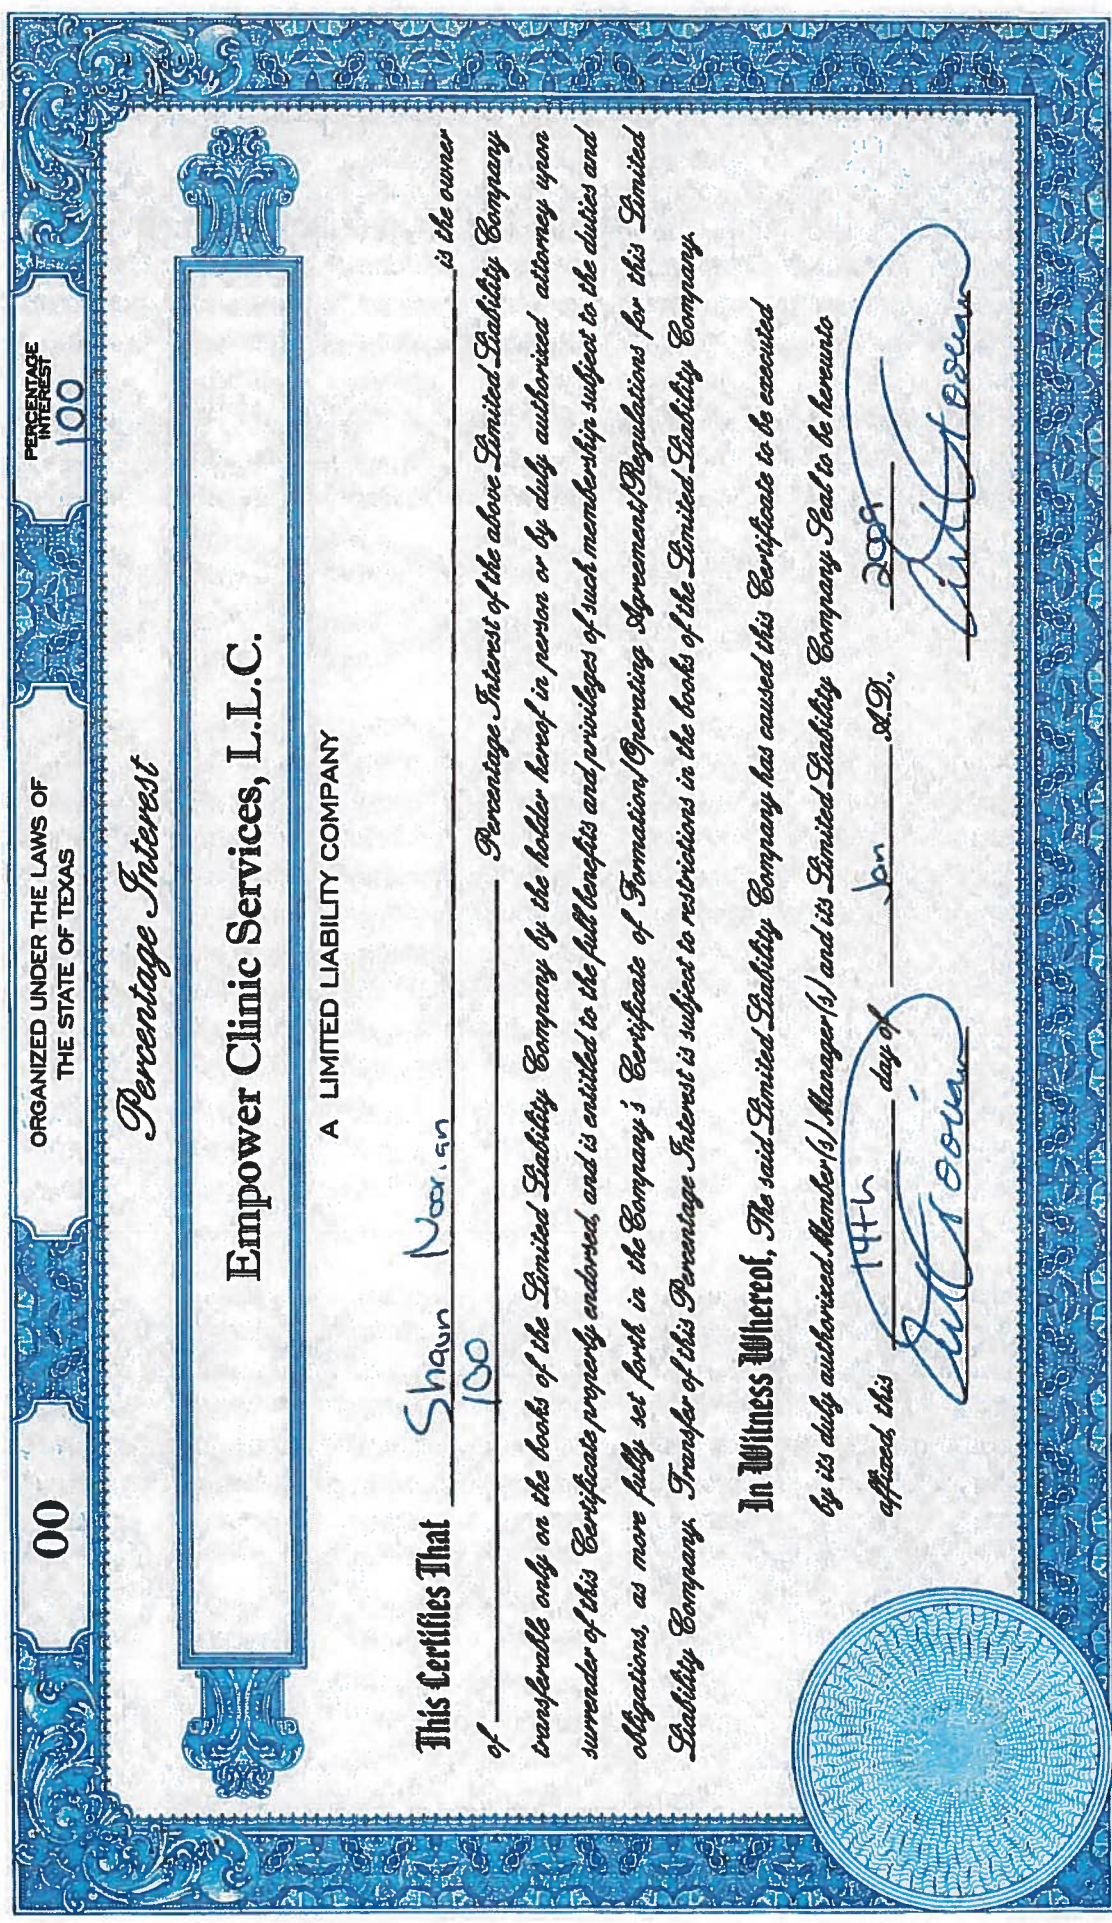 00
ORGANIZED UNDER THE LAWS OF
THE STATE OF TEXAS
PERCENTAGE
INTEREST
100
Percentage Interest
Empower Clinic Services, L.L.C.
A LIMITED LIABILITY COMPANY
This Certifies That Shaun Noorian is the owner
of 100 Percentage Interest of the above Limited Liability Company
transferable only on the books of the Limited Liability Company by the holder hereof in person or by duly authorized attorney upon
surrender of this Certificate properly endorsed, and is entitled to the full benefits and privileges of such membership subject to the duties and
obligations, as more fully set forth in the Company's Certificate of Formation/Operating Agreement/Regulations for this Limited
Liability Company. Transfer of this Percentage Interest is subject to restrictions in the books of the Limited Liability Company.
In Witness Whereof, The said Limited Liability Company has caused this Certificate to be executed
by its duly authorized Member(s)/Manager(s) and its Limited Liability Company Seal to be hereunto
affixed, this 14th day of Jan A.D., 2009